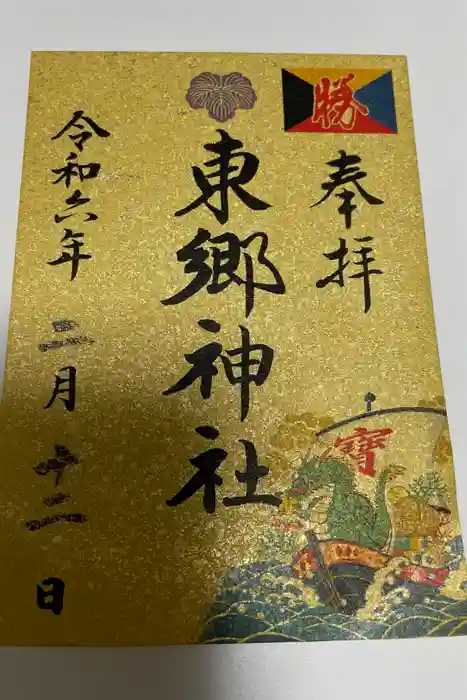 勝
奉拝
東郷神社
令和六年 二月十二日
寶